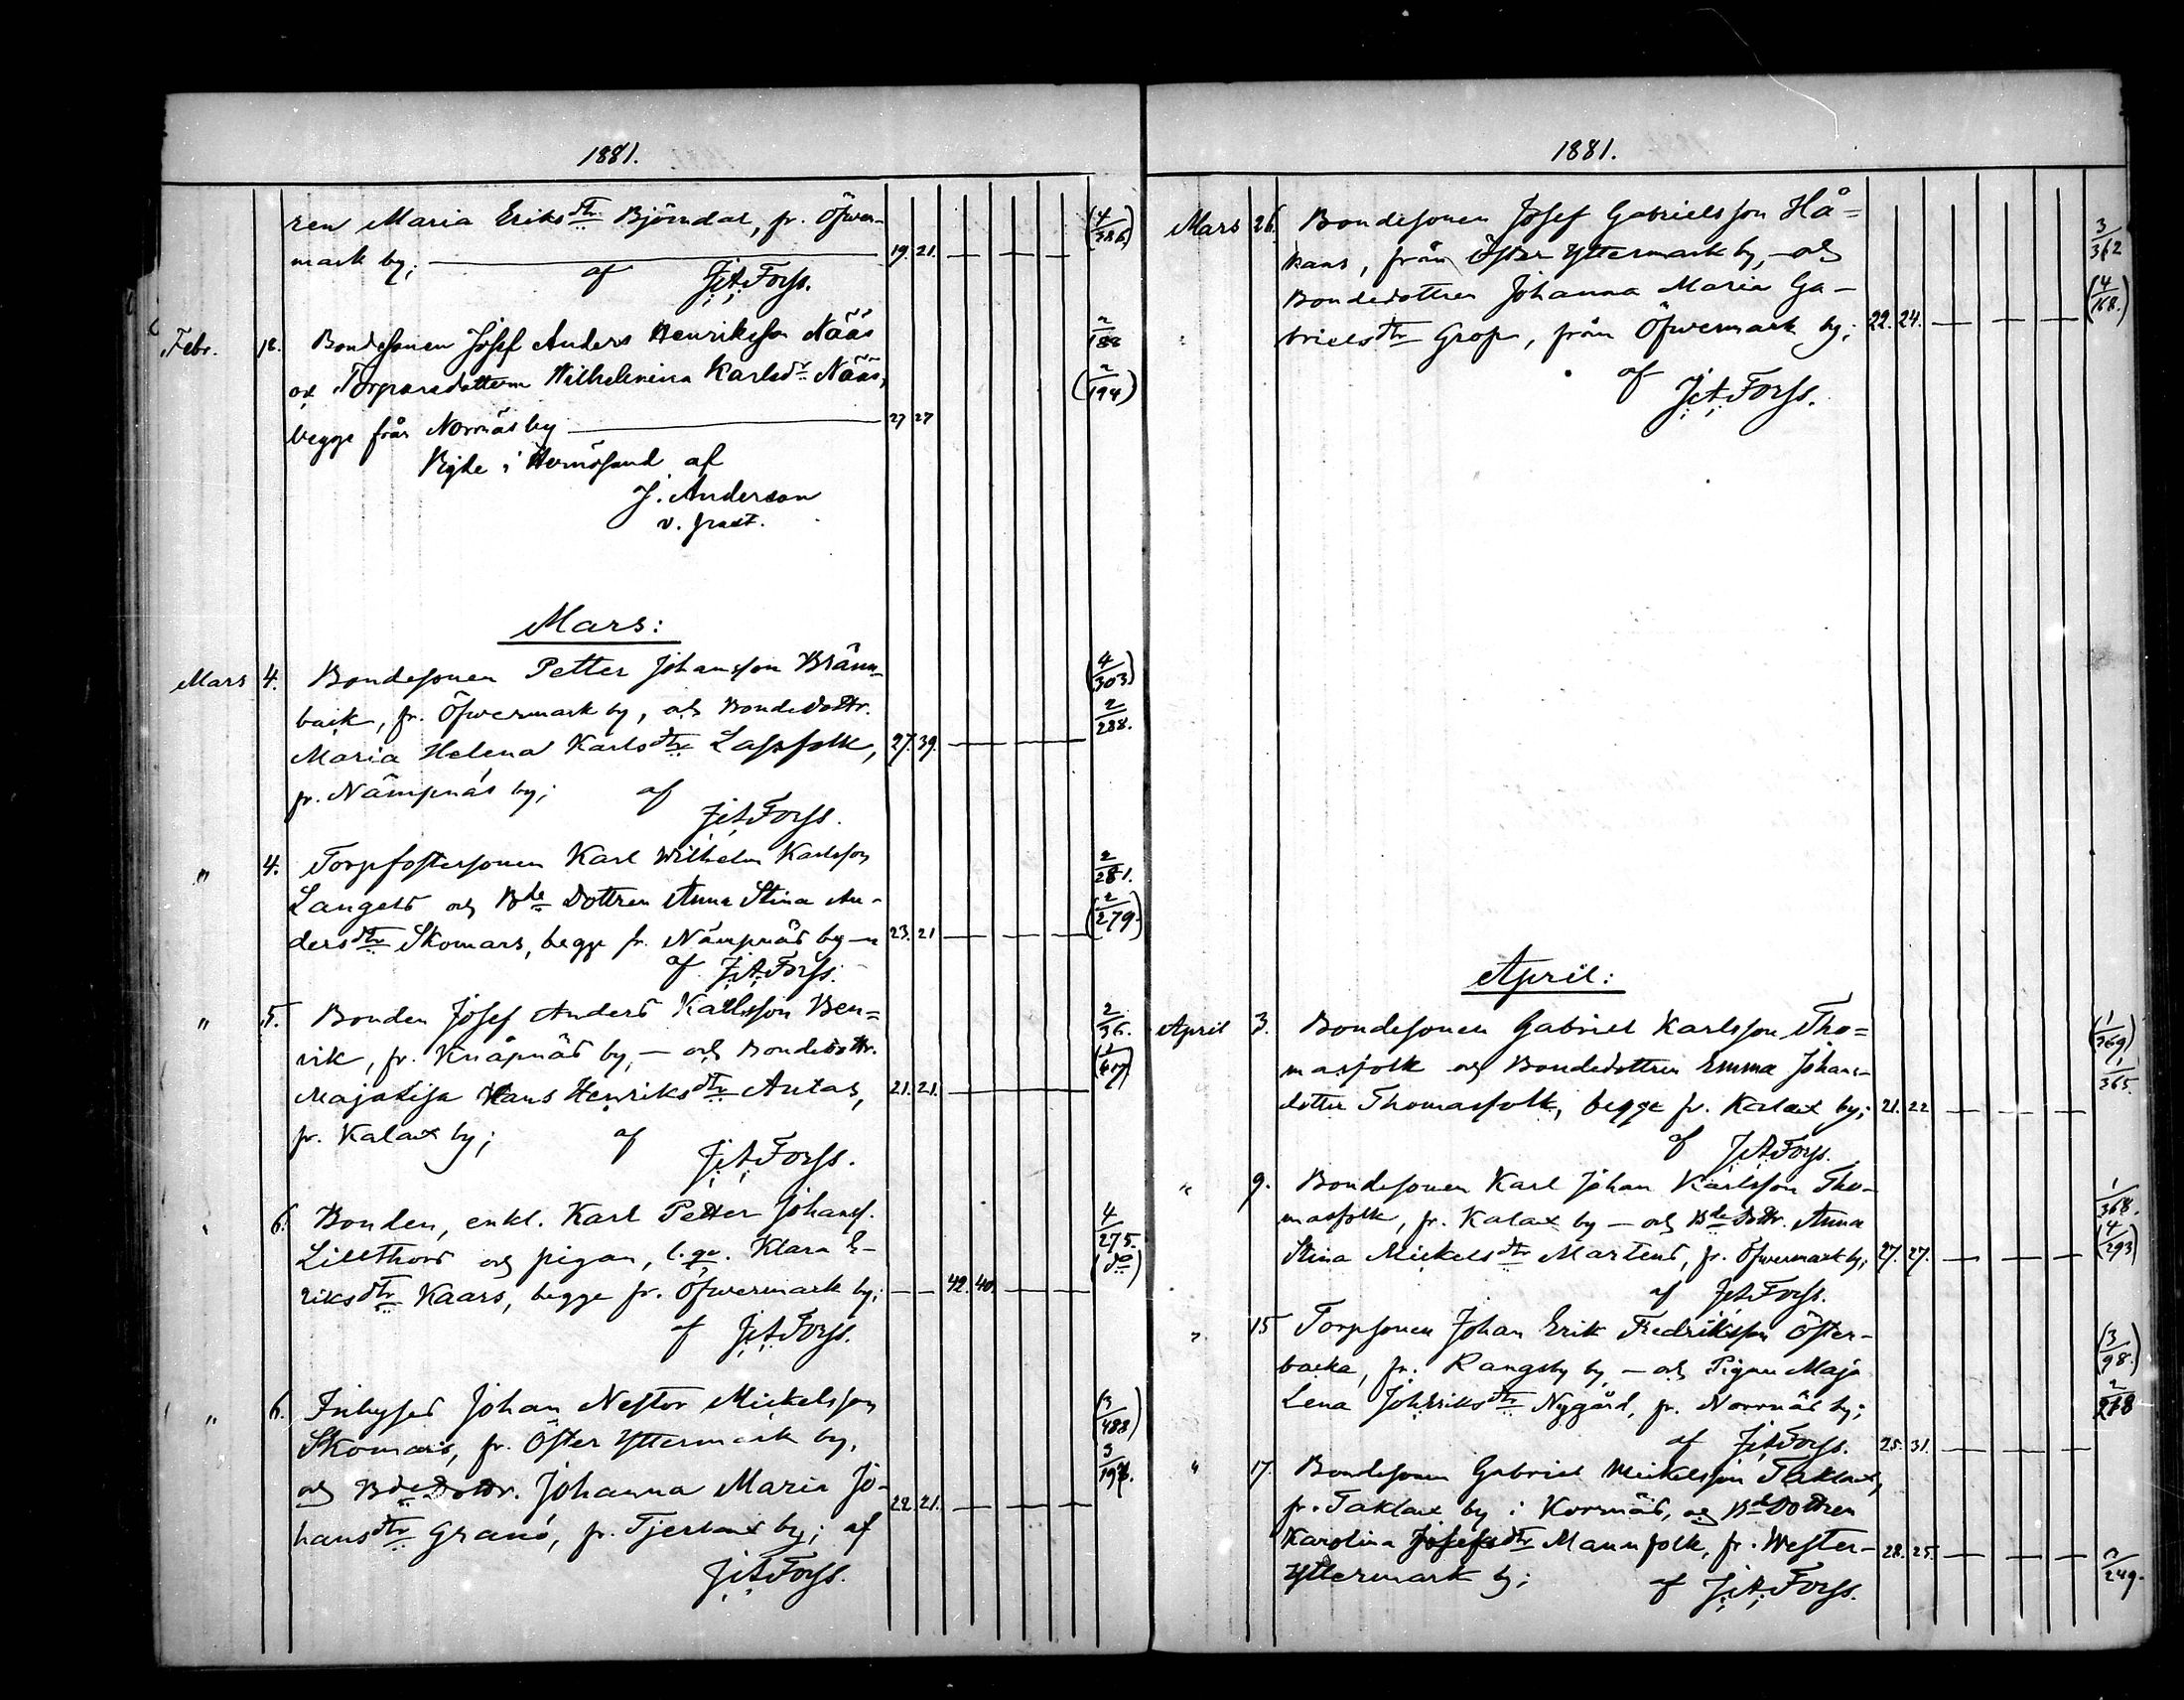 1881.
ren Maria Eriksdtr Björndal, fr. Öfver-
mark by; 19. 21. (4/386)
af J.A. Forss.
Febr. 18. Bondesonen Josef Anders Henriksson Nääs 2/188
och Torparedottern Wilhelmina Karlsdr Nääs, (2/194)
begge från Norrnäs by 27 27
Vigde i Hernösand af
J. Anderson
v. past.
Mars:
Mars 4. Bondesonen Petter Johansson Bränn- (4/303)
back, fr. Öfvermark by, och Bondedottr. 2/288.
Maria Helena Karlsdtr Lassfolk, 27. 39.
fr. Nämpnäs by; af
J.A. Forss.
" 4. Torpfostersonen Karl Wilhelm Karlsson 2/281.
Langels och Bde Dottren Anna Stina An- (2/279.)
dersdtr Skomars, begge fr. Nämpnäs by 23. 21
af J.A. Forss.
" 5. Bonden Josef Anders Karlsson Ben= 2/36.
vik, fr. Knåpnäs by, — och Bondedottr.
Maja Lisa Hans Henriksdtr Antas, 21. 21.
fr. Kalax by; af
J.A. Forss.
6. Bonden, enkl. Karl Petter Johanss. 4/275.
Lillthors och pigan, l. qv. Klara E- (do)
riksdtr Kaars, begge fr. Öfvermark by; 42. 40.
af J.A. Forss.
" 6. Inhyses Johan Nestor Mickelsson (3/488)
Skomars, fr. Öster Yttermark by,
och Bdedottr. Johanna Maria Jo-
hansdtr Granö, fr. Tjerlax by; af 22. 21.
J.A. Forss.
1881.
Mars 26. Bondesonen Josef Gabrielsson Hå= 3/362
kans, från Öster Yttermark by, — och
Bondedottren Johanna Maria Ga- (4/168.)
brielsdtr Grop, från Öfvermark by; 22. 24.
af J.A. Forss.
April:
April 3. Bondesonen Gabriel Karlsson Tho= (1/369)
masfolk och Bondedottren Emma Johans- 1/365.
dotter Thomasfolk, begge fr. Kalax by; 21. 22
af J.A. Forss.
" 9. Bondesonen Karl Johan Karlsson Tho- 1/368.
masfolk, fr. Kalax by — och Bde Dottr. Anna (4/293)
Stina Mickelsdtr Martens, fr. Öfvermark by; 27. 27.
af J.A. Forss.
" 15 Torpsonen Johan Erik Fredriksson Öster- (3/98.)
backa, fr. Rangsby by, — och Pigan Maja
Lena Johriksdtr Nygård, fr. Norrnäs by;
af J.A. Forss. 25. 31.
" 17. Bondesonen Gabriel Mickelsson Taklax,
fr. Taklax by i Korsnäs, och Bde Dottren
Karolina Josefsdtr Mannfolk, fr. Wester- 28. 25.
Yttermark by; af J.A. Forss. 2/249.